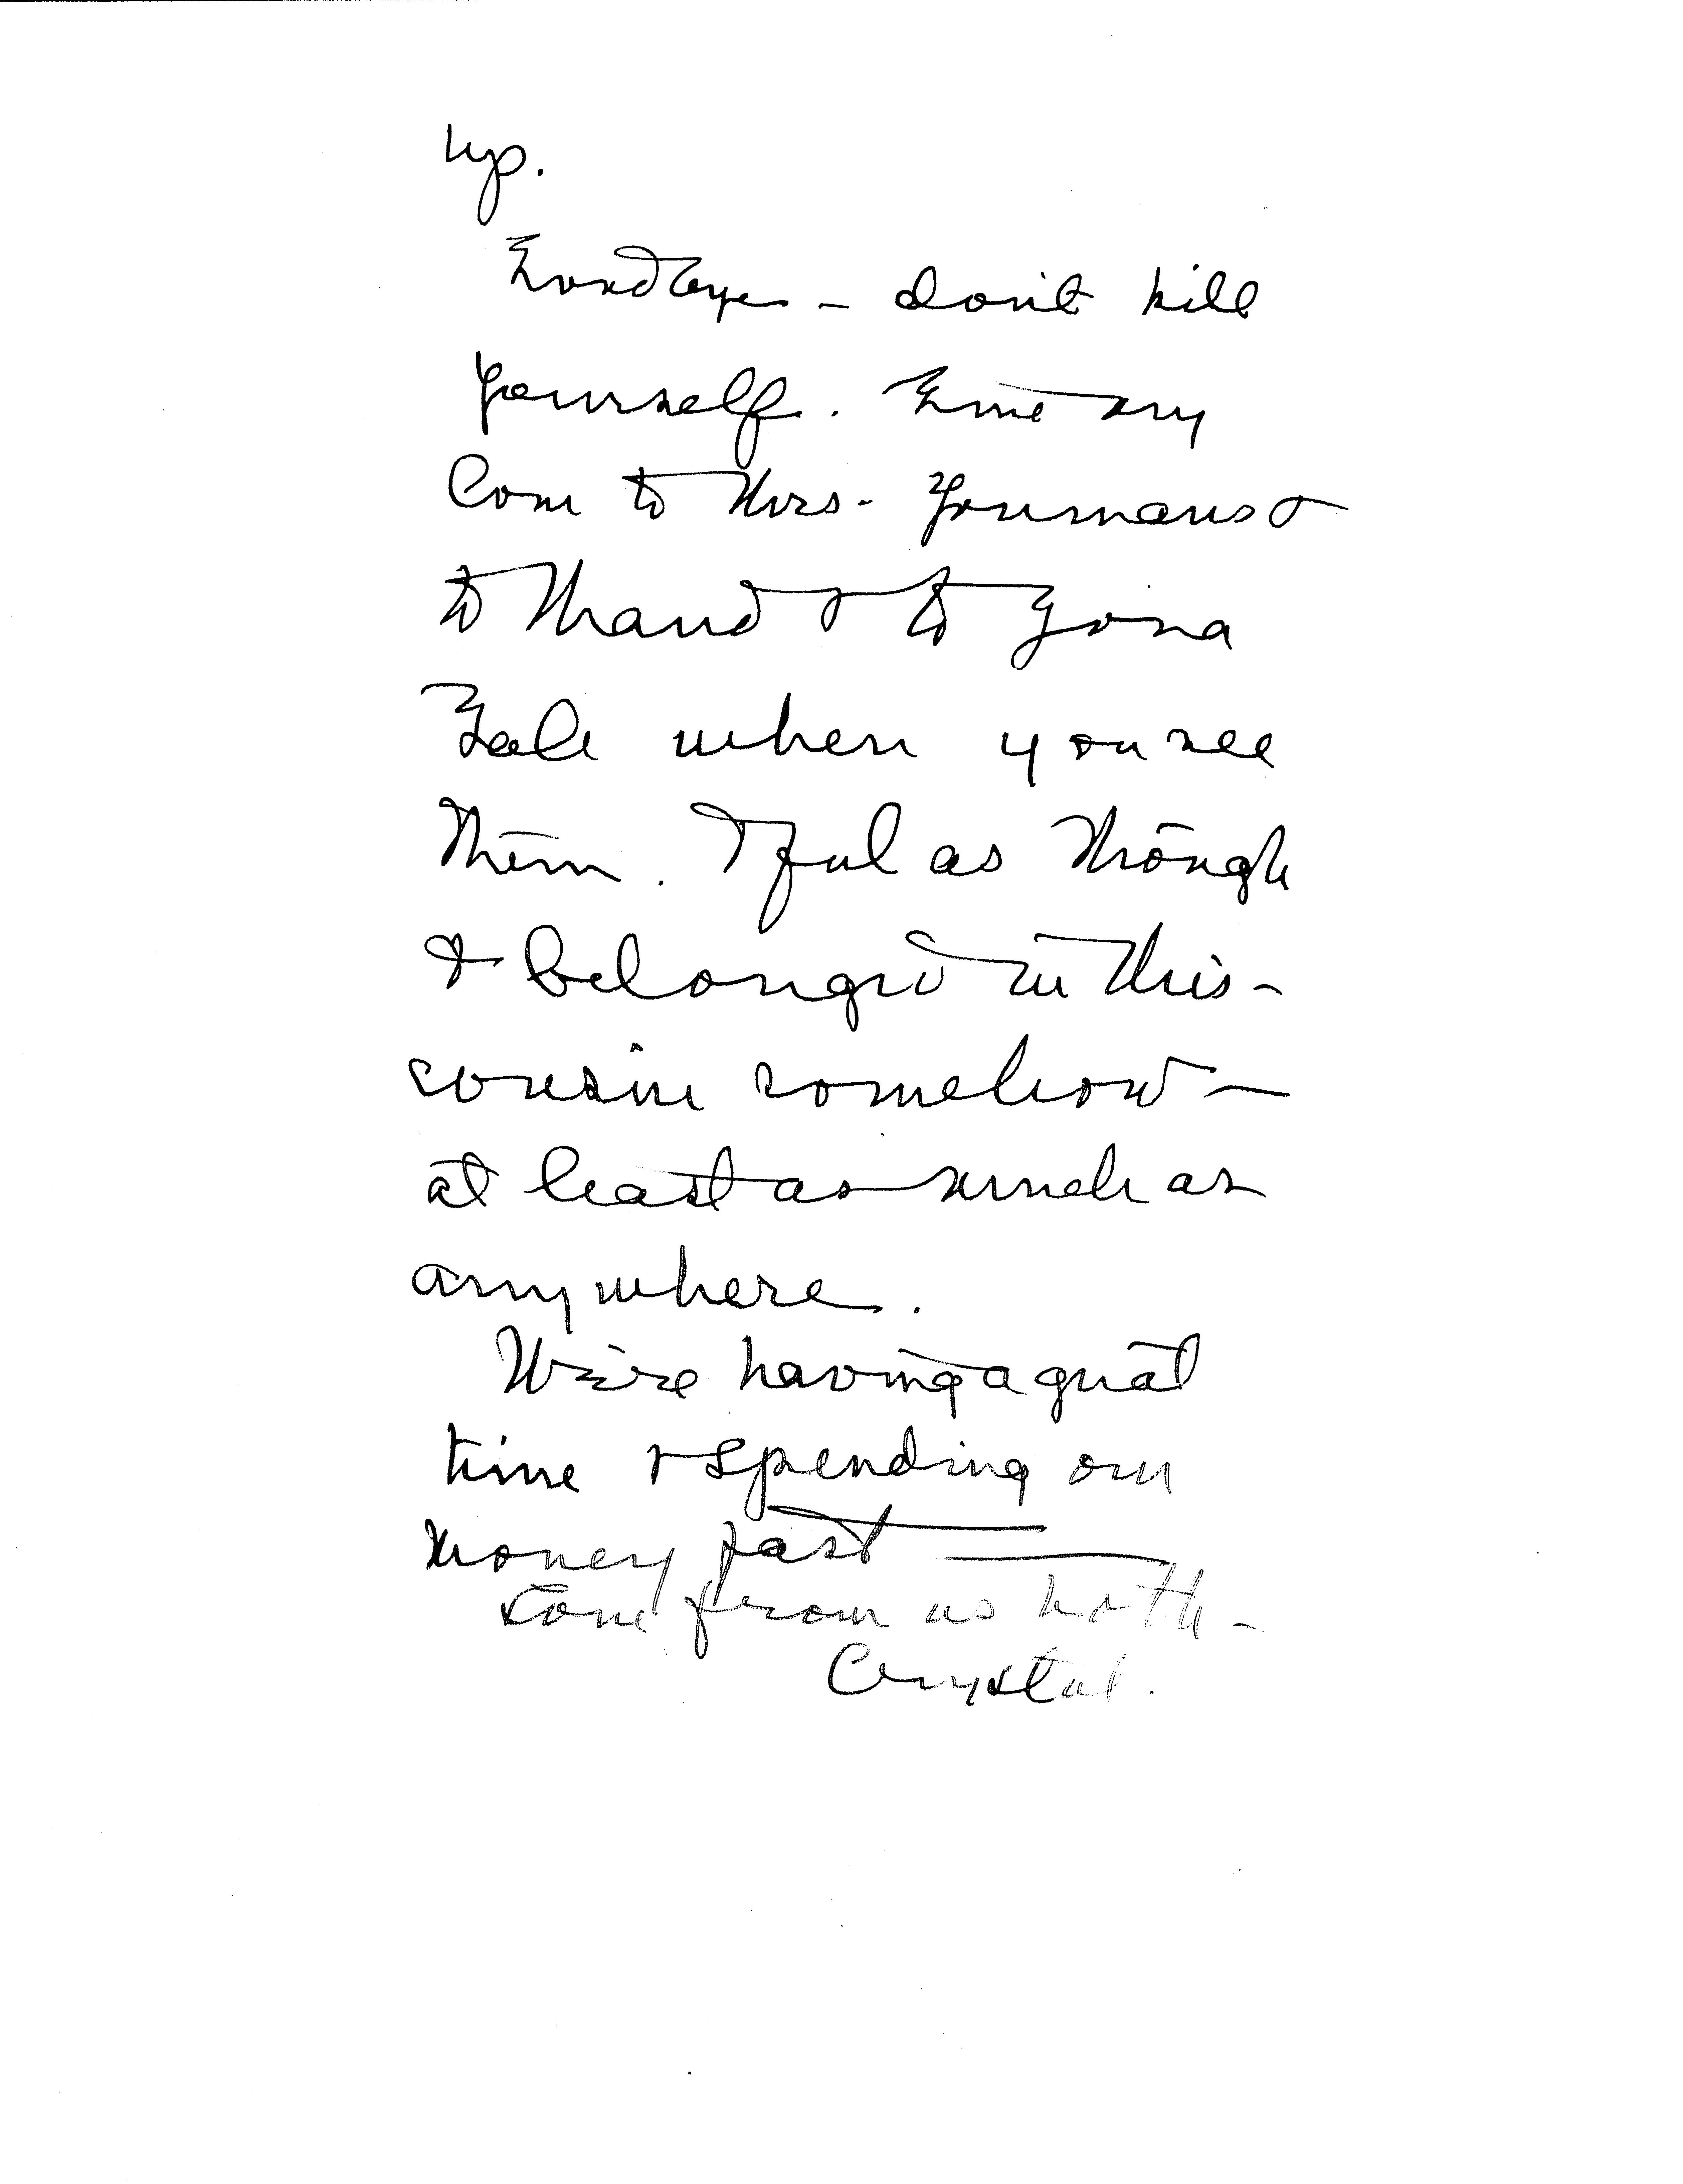 up.
Goodbye – don't kill
yourself. Give my
love to Mrs. Youmans &
to Maud & to Zona
Gale when you see
them. I feel as though
I belonged in Wis-
consin somehow –
at least as much as
anywhere.
We're having a great
time & spending our
money fast —
Love from us both –
Crystal.